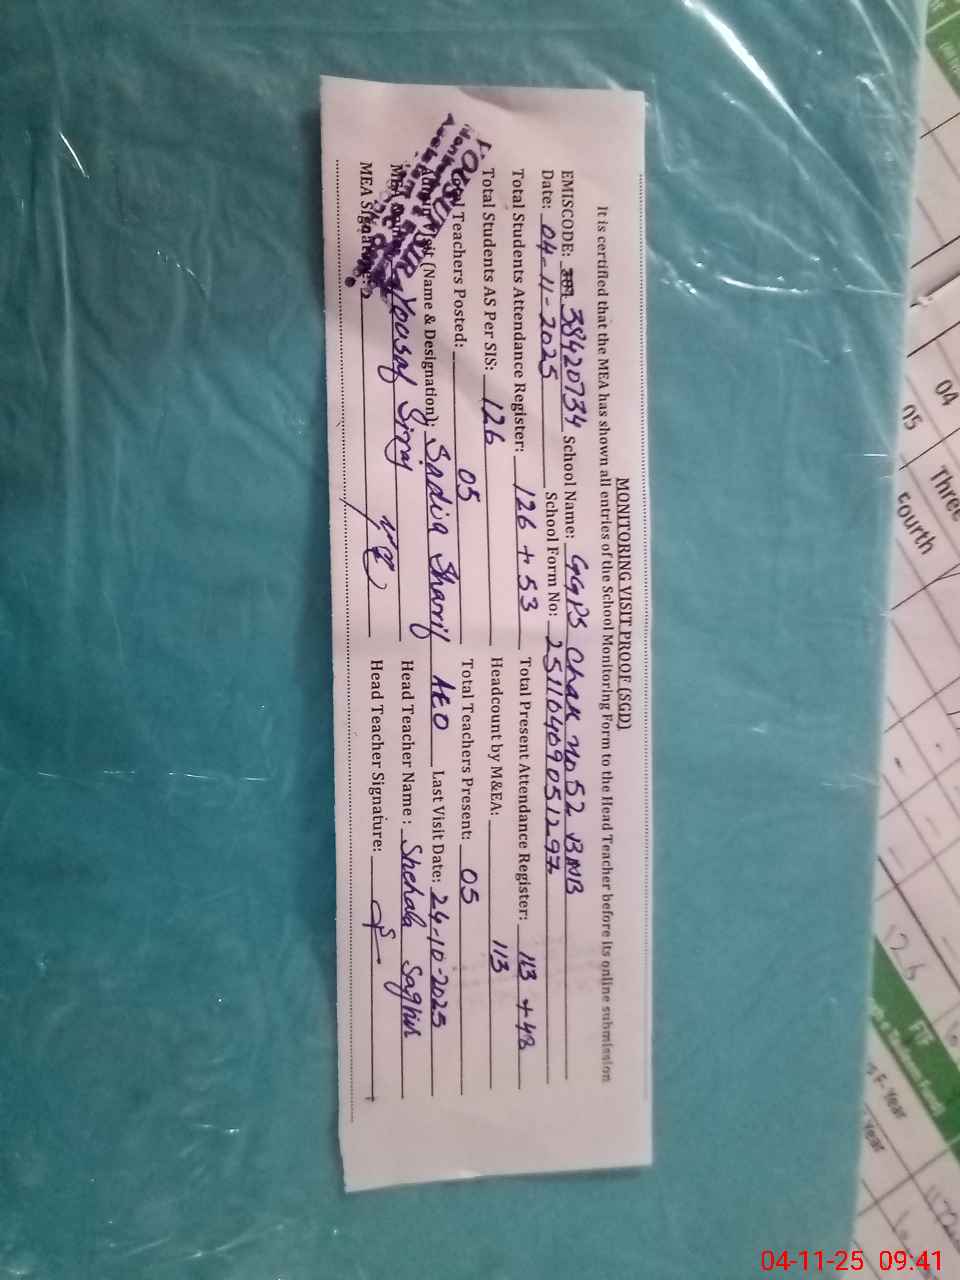 MONITORING VISIT PROOF (SGD)
It is certified that the MEA has shown all entries of the School Monitoring Form to the Head Teacher before its online submission
EMISCODE: 38420734 School Name: GGPS Chak No 52 BNB
Date: 04-11-2025 School Form No: 25110409051297
Total Students Attendance Register: 126 + 53 Total Present Attendance Register: 113 + 48
Total Students AS Per SIS: 126 Headcount by M&EA: 113
Total Teachers Posted: 05 Total Teachers Present: 05
Admin Visit (Name & Designation): Sadia Sharif AEO Last Visit Date: 24-10-2025
MEA Name: Yousaf Siraj Head Teacher Name: Shehala Saghir
MEA Signature: Head Teacher Signature:
04
05
Three
fourth
125
FTF
Year
04-11-25 09.41